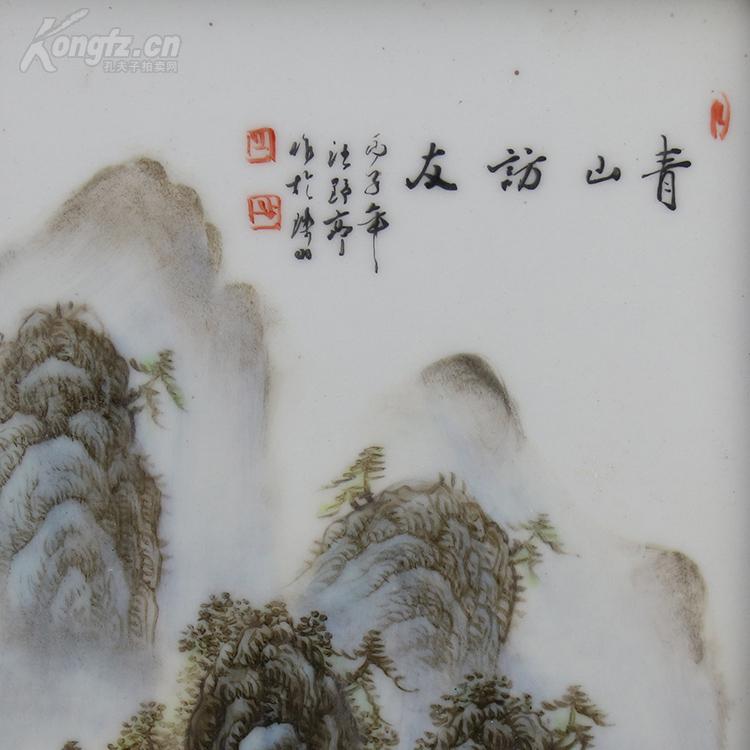 Kongfz.cn
孔夫子拍卖网
青山訪友
丙子年
汪野亭
作於珠山